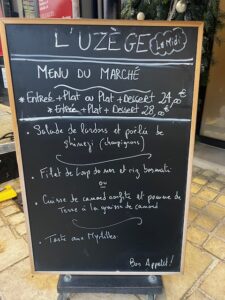 L'UZÈGE Le Midi
MENU DU MARCHÉ
* Entreé + Plat ou Plat + Dessert 24,00€
* Entreé + Plat + Dessert 28,00€
• Salade de lardons et poêlée de
shimeji (champignons)
• Filet de Loup de mer et riz basmati
ou
Cuisse de canard confite et pomme de
Terre à la graisse de canard
• Tarte aux Myrtilles
Bon Appetit !